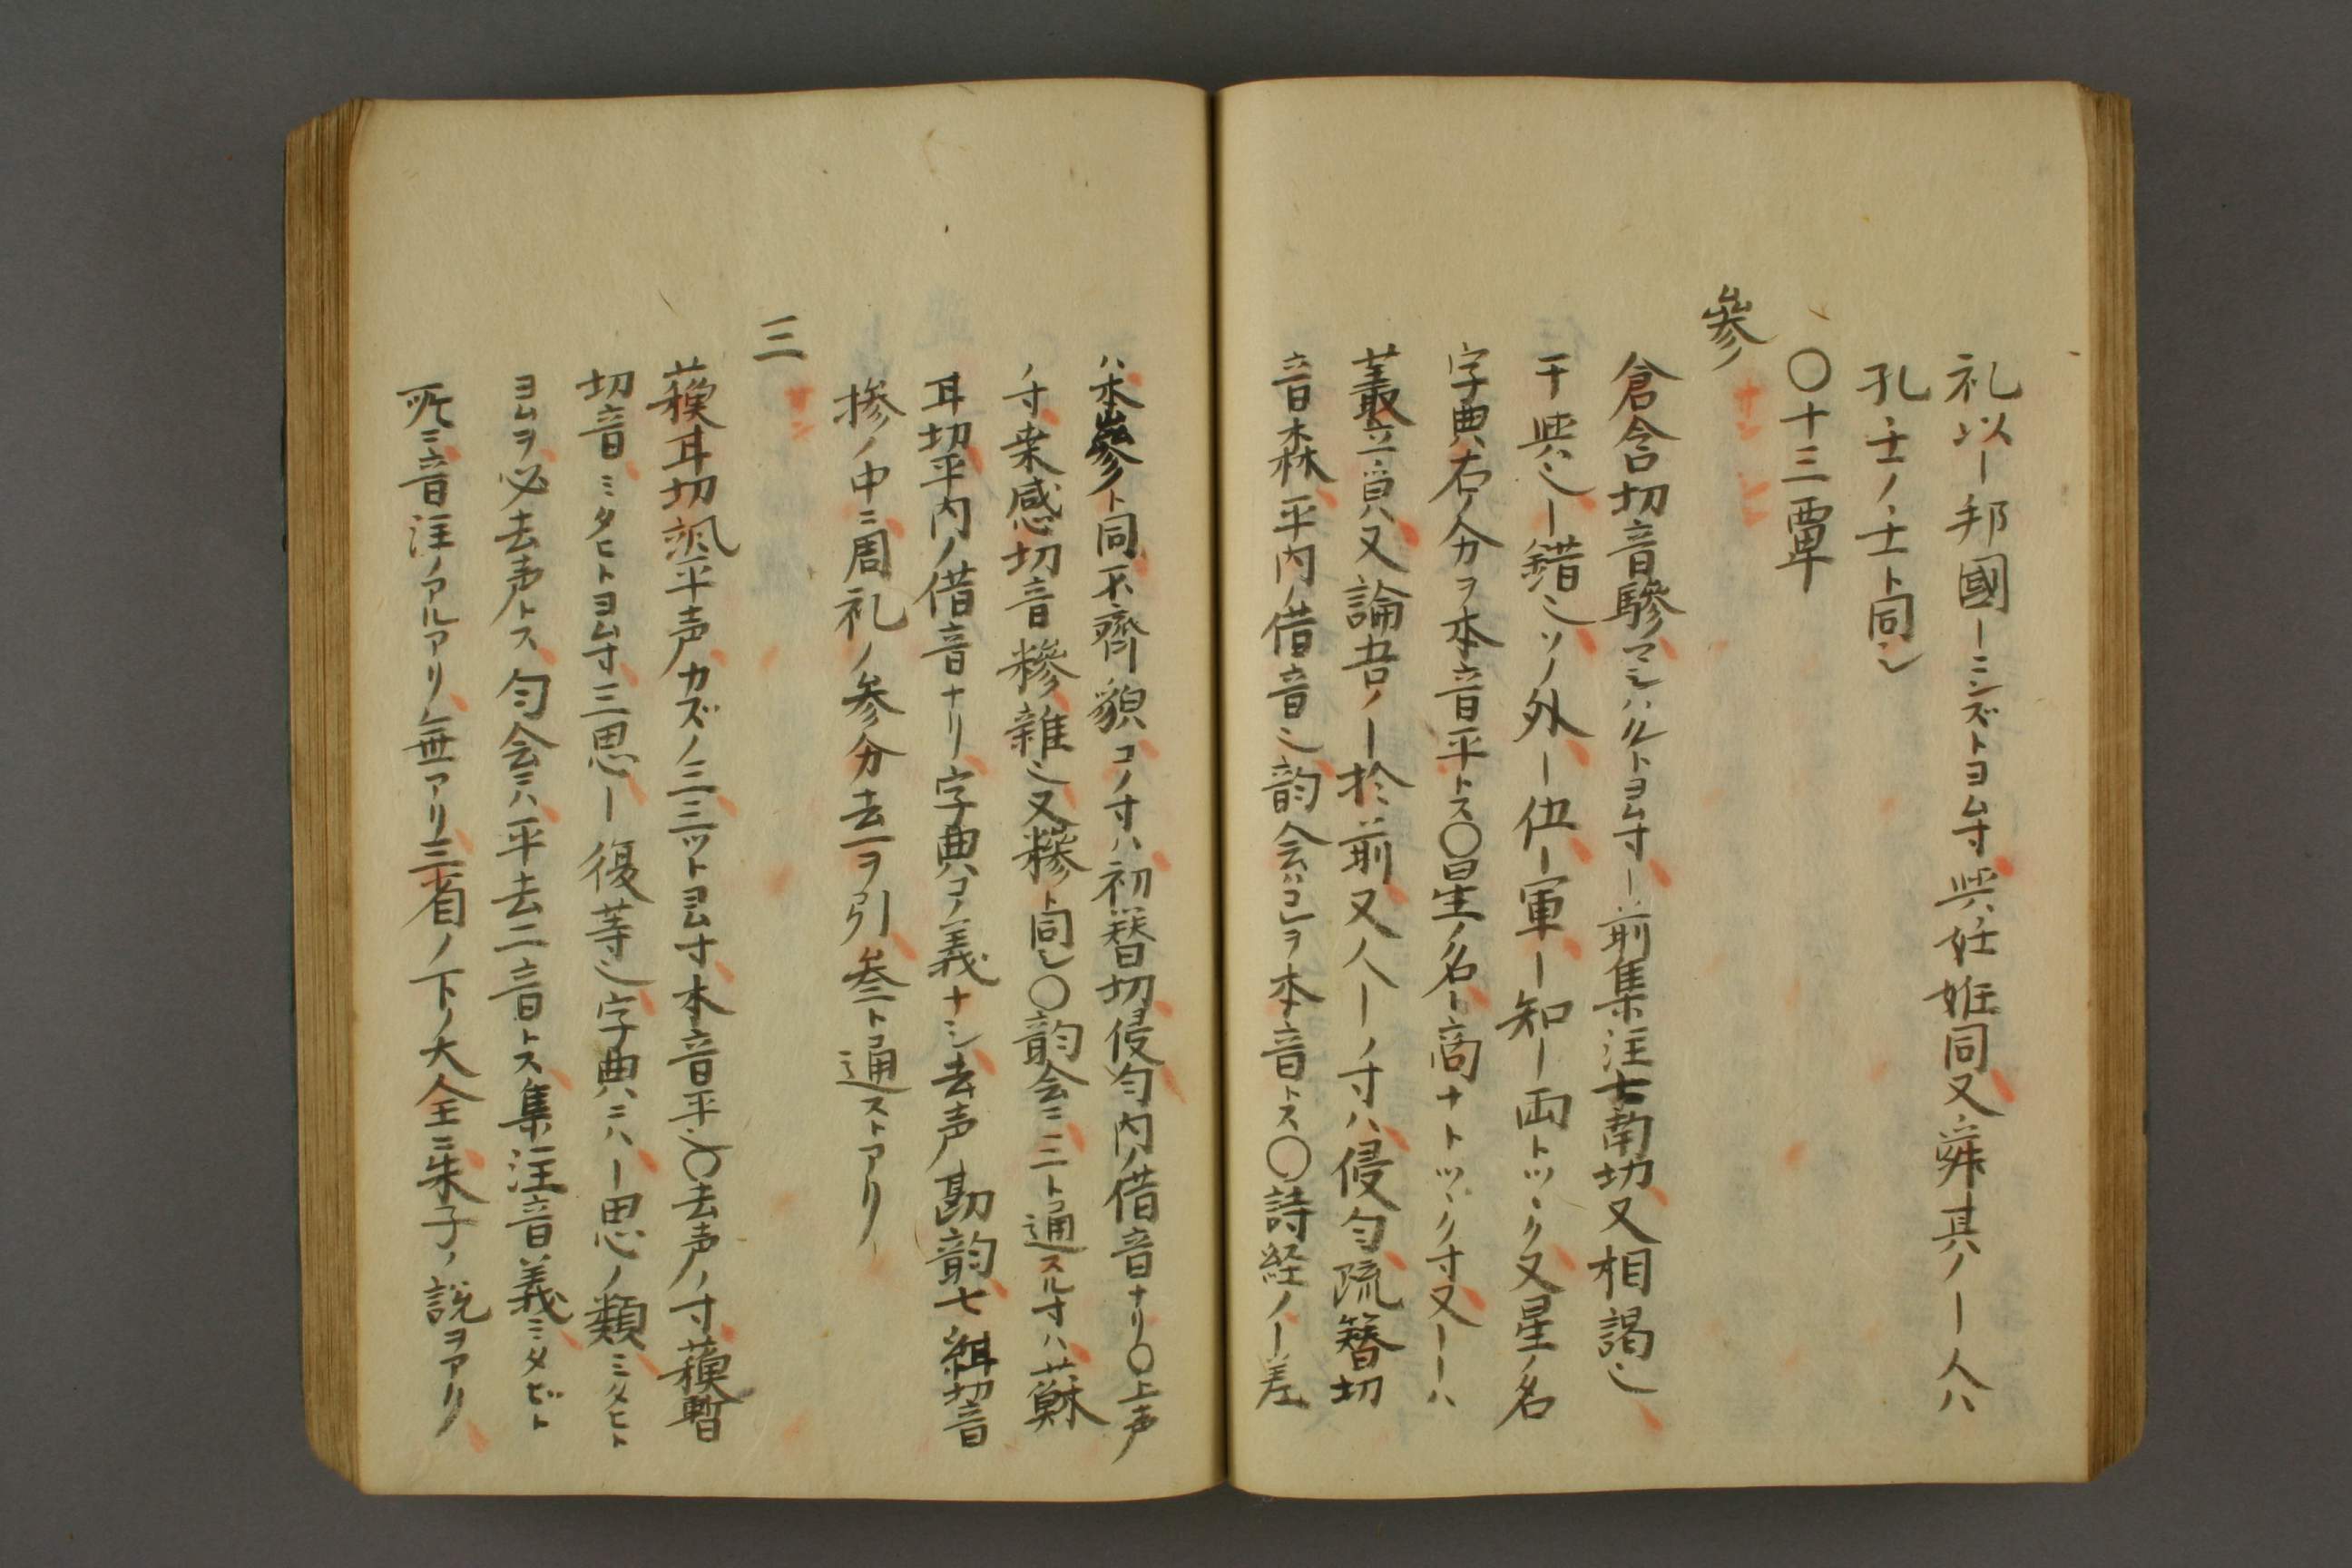 礼以ー邦國ーミンズトヨム寸與妊姙同又舜其ノー人ハ
孔壬ノ壬ト同シ
〇十三覃
參
サン シン
倉含切音驂マジハルトヨム寸ー前集注七南切又相謁也
干與也ー錯也ソノ外ー伍ー軍ー知ー両トツヽク又星ノ名
字典右ノ分ヲ本音平トス〇星ノ名ー商ナトツヽク寸又ーーハ
叢立皃又論吾ノー於前又人ーノ寸ハ侵匀疏簪切
音森平内ノ借音也韵会ハコレヲ本音トス〇詩経ノー差
ハ木參ト同不齊貌コノ寸ハ初簪切侵匀内ノ借音ナリ〇上声
ノ寸桒感切音糝雜也又糝ト同シ〇韵会ニ三ト通スル寸ハ蘇
耳切平内ノ借音ナリ字典コノ義ナシ去声勘韵七紺切音
摻ノ中ニ周礼ノ参分去一ヲ引叁ト通ストアリ
三
サン
蘓耳切颯平声カズノ三三ツトヨム寸本音平也〇去声ノ寸蘓暫
切音ミタヒトヨム寸三思ー復等也字典ニハー思ノ類ミタヒト
ヨムヲ必去声トス匀会ニハ平去二音トス集注音義ミタビト
所ニ音注ノアルアリ無アリ三省ノ下ノ大全ニ朱子ノ説ヲアリ